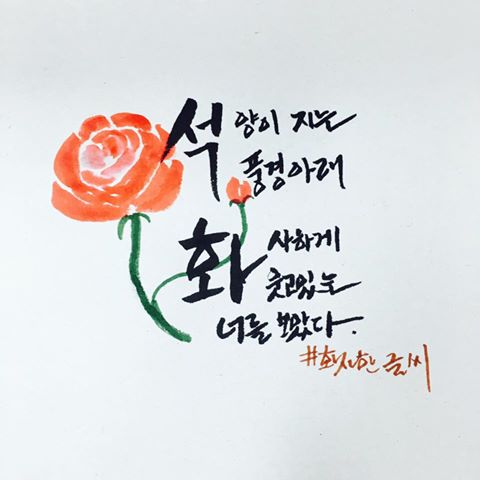 석양이 지는
풍경아래
화사하게
웃고있는
너를 보았다.
#화사한글씨